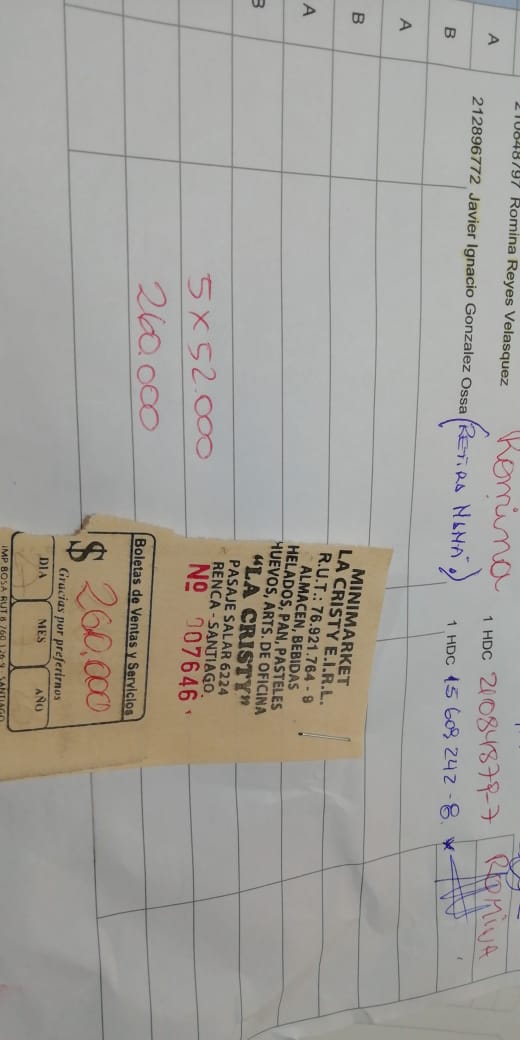 210848797 Romina Reyes Velasquez Romina 1 HDC 21084879-7 ROMINA
A
212896772 Javier Ignacio Gonzalez Ossa (RETIRA MAMÁ) 1 HDC 15.609.242-8. *
B
A
B
A
B
5 X 52.000
260.000
MINIMARKET
LA CRISTY E.I.R.L.
R.U.T.: 76.921.764 - 9
ALMACEN, BEBIDAS
HELADOS, PAN, PASTELES
HUEVOS, ARTS. DE OFICINA
"LA CRISTY"
PASAJE SALAR 6224
RENCA - SANTIAGO
Nº 007646
Boletas de Ventas y Servicios
$ 260.000
Gracias por preferirnos
DIA MES AÑO